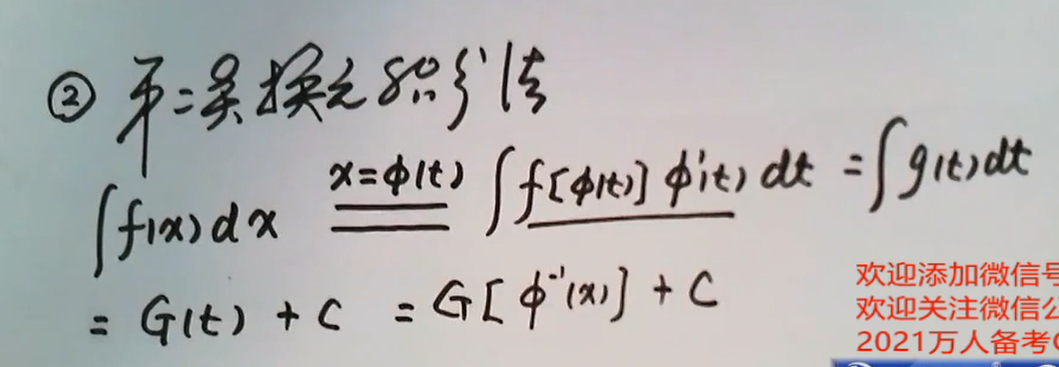 ② 第二类换元积分法
∫f(x)dx x=φ(t) ∫f[φ(t)]φ'(t)dt = ∫g(t)dt
= G(t) + C = G[φ⁻¹(x)] + C
欢迎添加微信号
欢迎关注微信公
2021万人备考